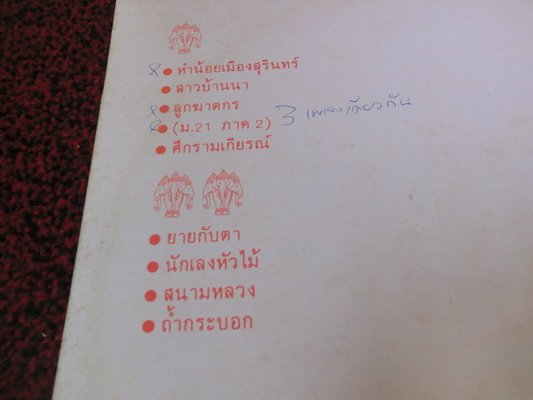 หำน้อยเมืองสุรินทร์
สาวบ้านนา
ลูกฆาตกร
(ม.21 ภาค 2) 3 เพลงเดียวกัน
ศึกรามเกียรณ์
ยายกับตา
นักเลงหัวไม้
สนามหลวง
ถ้ำกระบอก